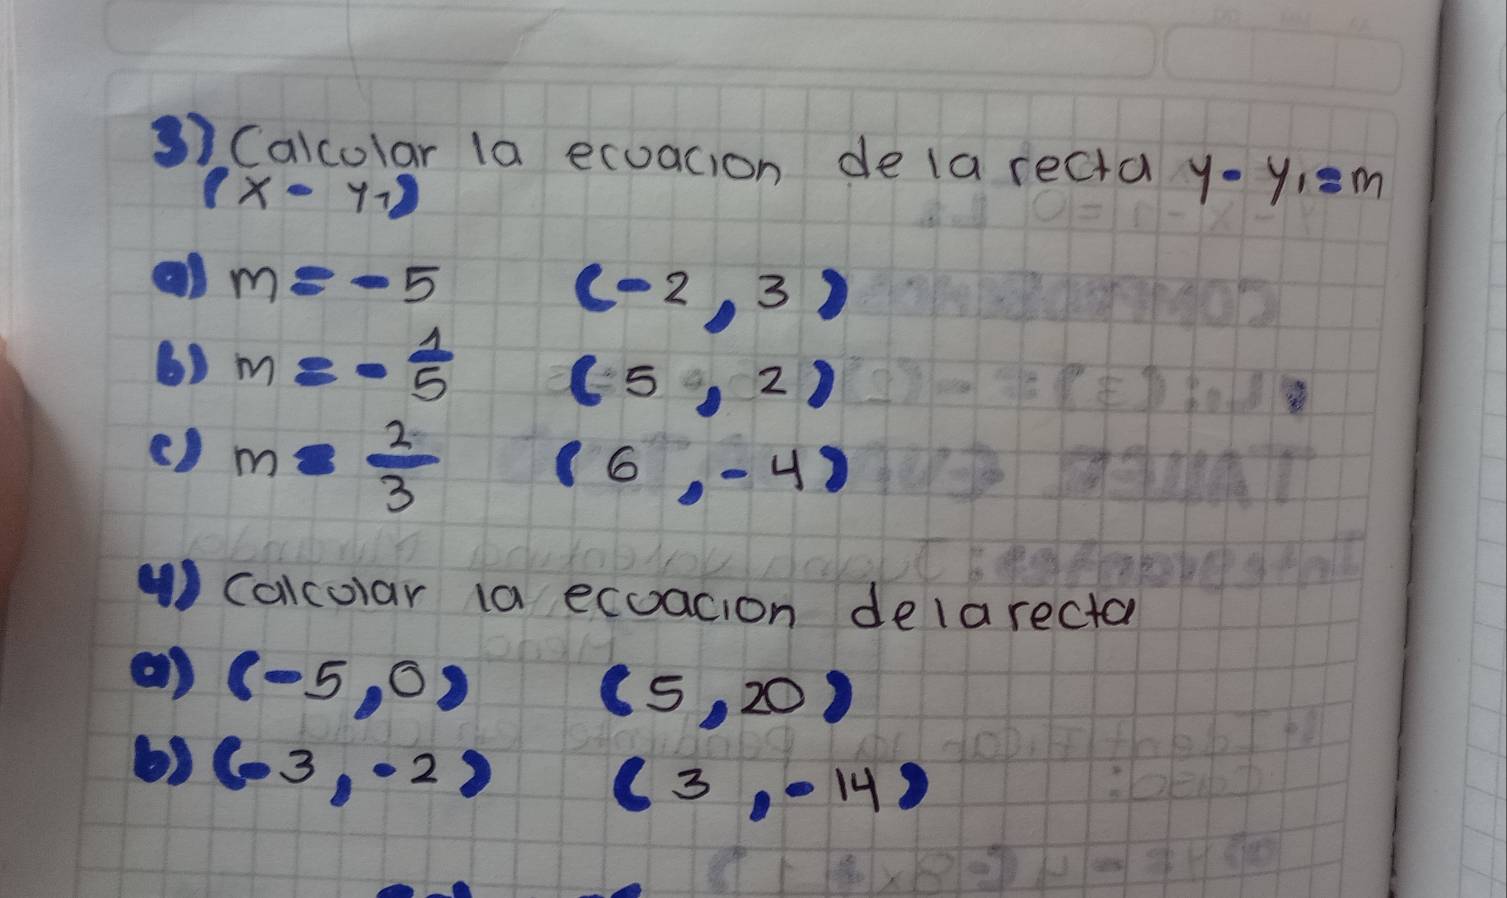 3) Calcolar la ecuacion de la recta y - y₁ = m
(x - y₁)
a) m = - 5 (-2 , 3)
b) m = - 1/5 (5 , 2)
c) m = 2/3 (6 , -4)
4) Calcolar la ecuacion de la recta
a) (-5 , 0) (5 , 20)
b) (-3 , -2) (3 , -14)